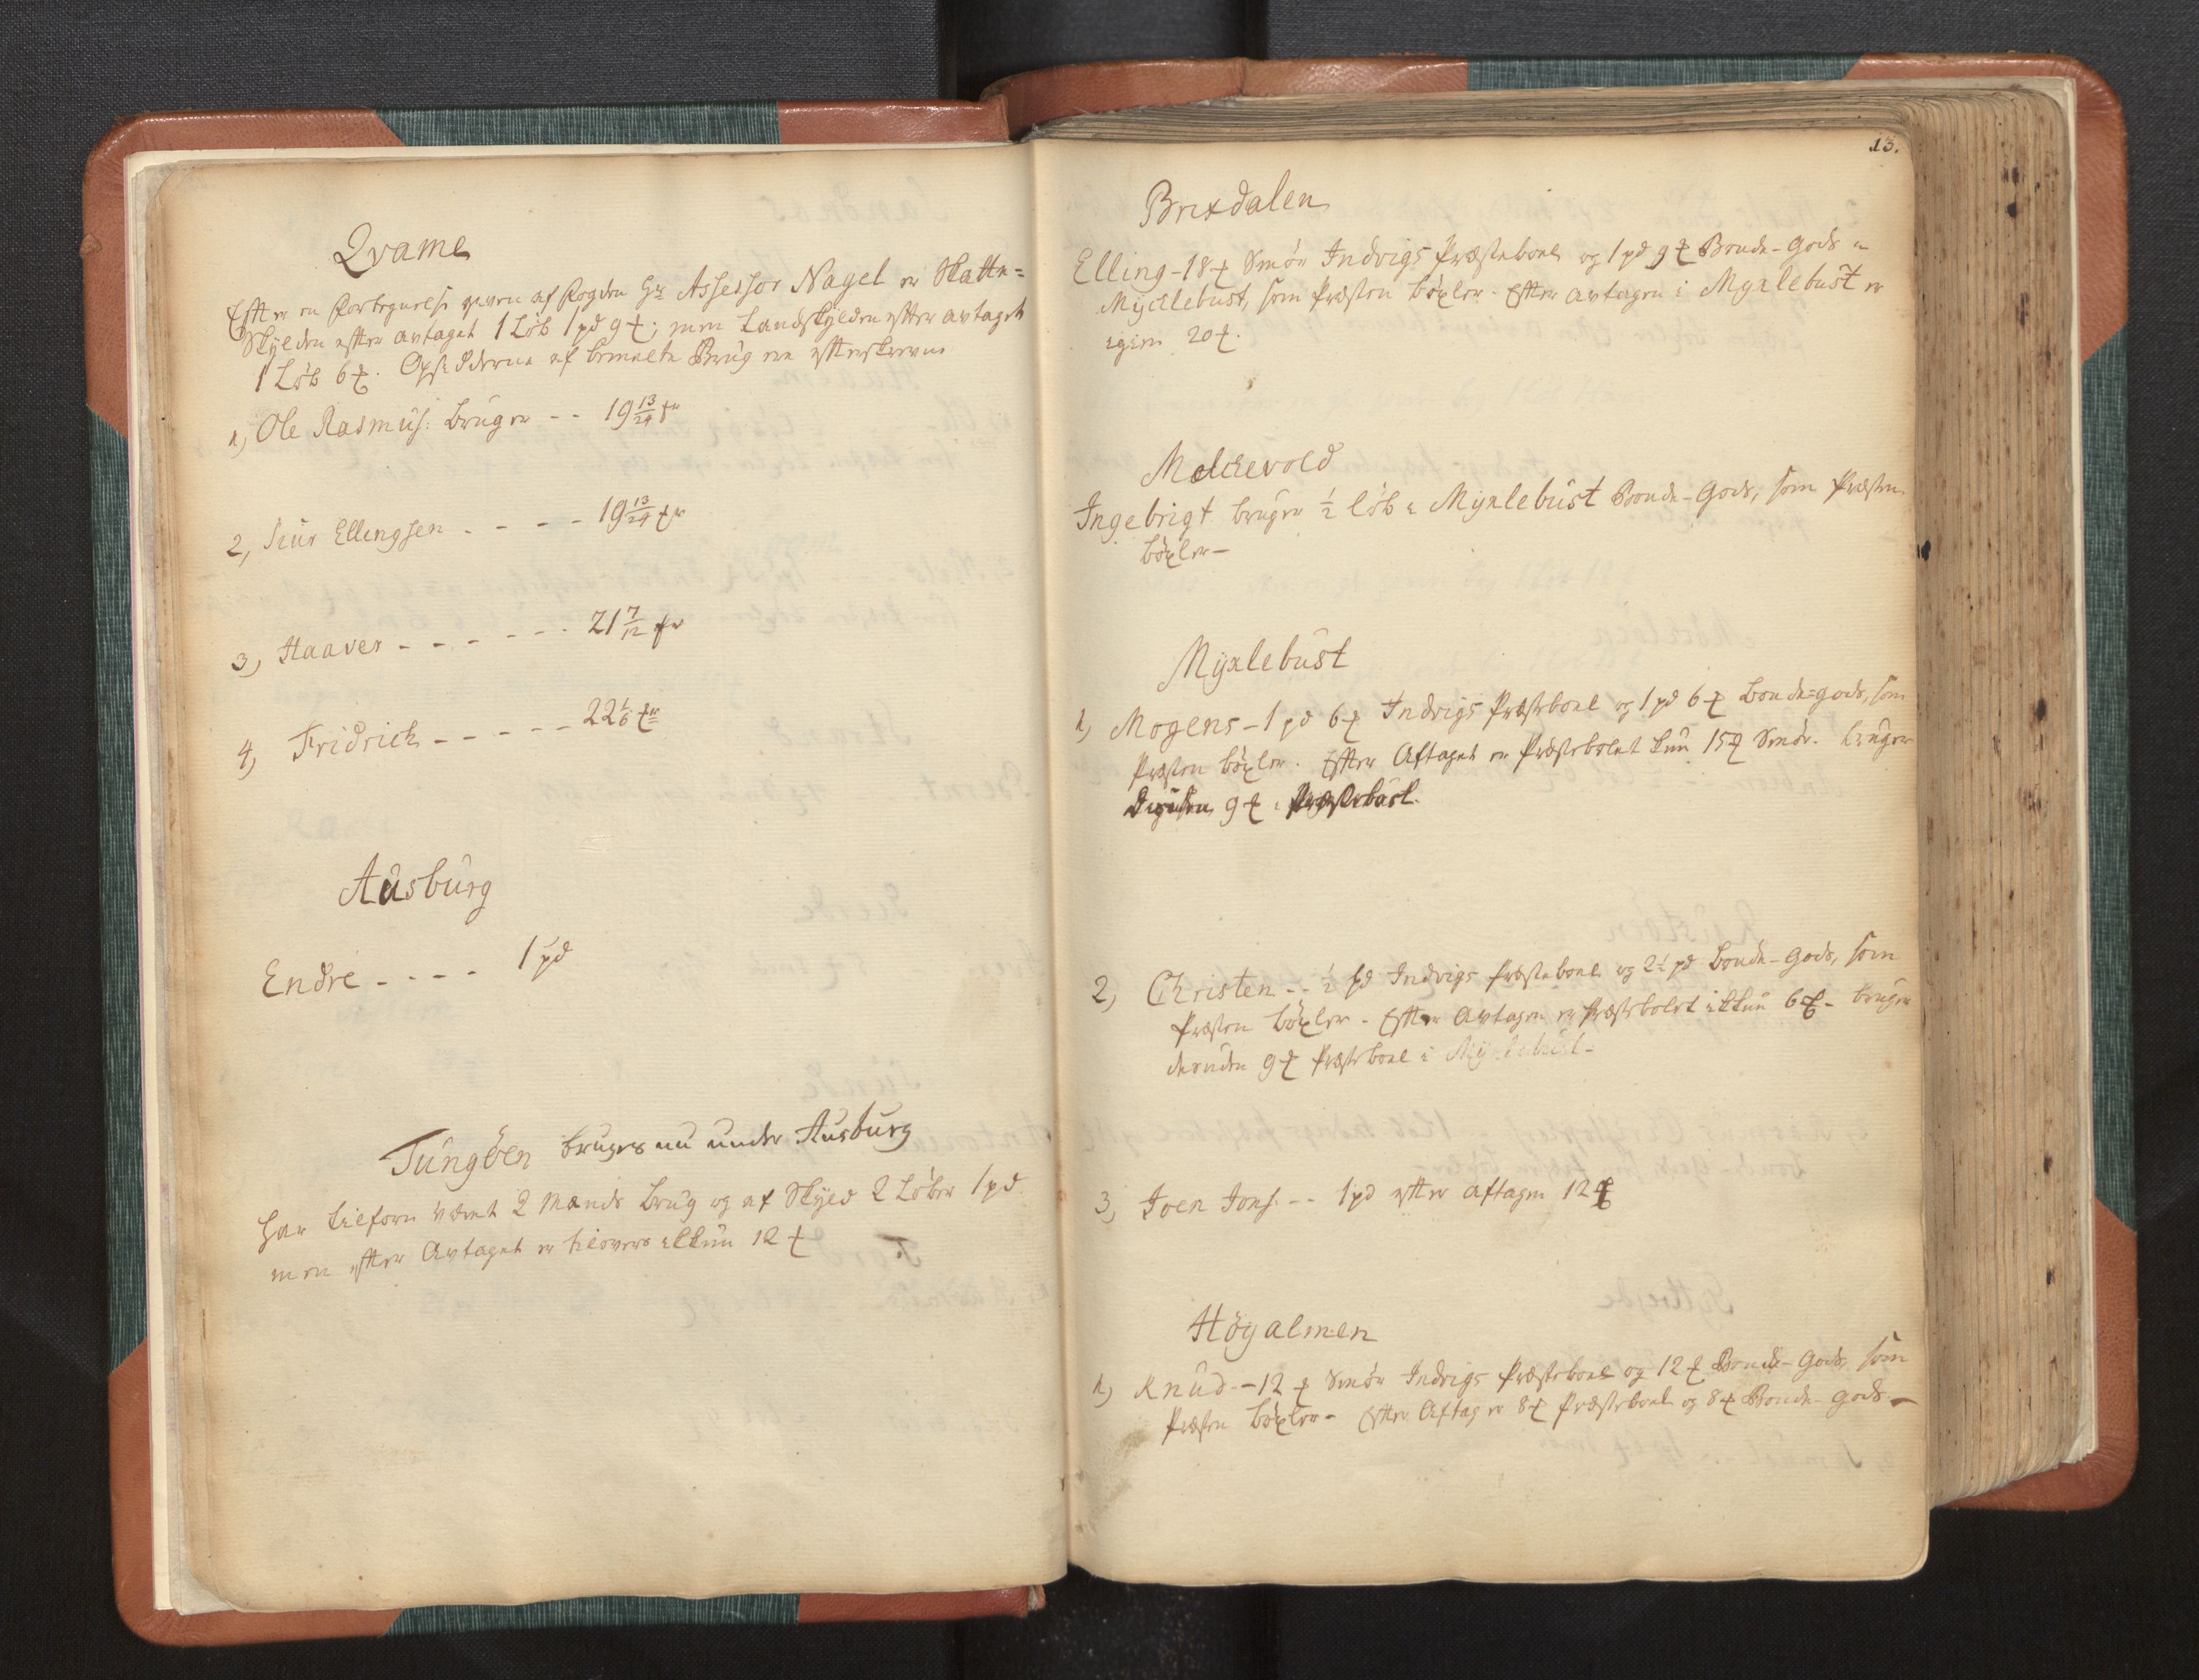 Qvame
Efter en Fortegnelse given af Fogden Hr Assessor Nagel er Skatte=
Skylden efter avtaget 1 Løb 1 pd 9 ℔; men Landskylden efter avtaget
1 Løb 6 ℔. Opsidderne af bemelte Brug ere efterskrevne
1, Ole Rasmus: bruger - - 19 13/24 ℔r
2, Siur Ellingsen - - - - 19 13/24 ℔r
3, Haaver - - - - - - 21 7/12 ℔r
4, Fridrich - - - - - 22 1/6 ℔r
Ausburg
Endre - - - - 1 pd
Tungöen bruges nu under Ausburg
har tilforn været 2 Mænds brug og af Skyld 2 Løber 1 pd
men efter Avtaget er tilovers ikkun 12 ℔
13.
Brixdalen
Elling - 18 ℔ Smör Indvigs Præsteboel og 1 pd 9 ℔ Bonde-Gods i
Mycklebust, som Præsten böxler. Efter avtagen i Myxlebust er
igien 20 ℔.
Melckevold
Ingebrigt bruger ½ löb i Myxlebust Bonde-Gods, som Præsten
böxler -
Myxlebust
1, Mogens - 1 pd 6 ℔ Indvigs Præsteboel og 1 pd 6 ℔ bonde=gods, som
Præsten böxler. Efter Aftaget er Præstebolet kun 15 ℔ Smör. bruger
desuden 9 ℔ i Præsteboel.
2, Christen - - ½ pd Indvigs Præsteboel og 2½ pd bonde-gods, som
Præsten böxler - Efter Avtagen er Præstebolet ikkun 6 ℔ - bruger
desuden 9 ℔ Præsteboel i Myxlebust -
3, Joen Jons. - - 1 pd efter aftagen 12 ℔
Höyalmen
1, Knud - - 12 ℔ Smör Indvigs Præsteboel og 12 ℔ Bonde-Gods, som
Præsten böxler - Efter Aftag er 8 ℔ Præsteboel og 8 ℔ Bonde-gods -